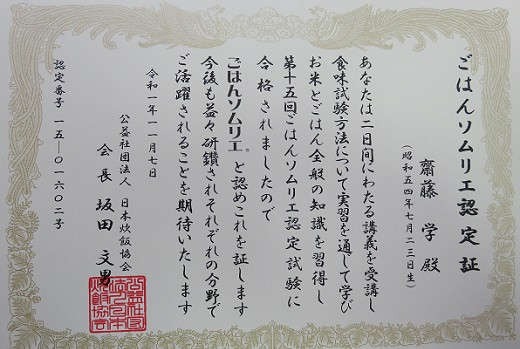 ごはんソムリエ認定証
齋藤 学 殿
（昭和五四年七月二三日生）
あなたは二日間にわたる講義を受講し
食味試験方法について実習を通して学び
お米とごはん全般の知識を習得し
第十五回ごはんソムリエ認定試験に
合格されましたので
ごはんソムリエと認めこれを証します
今後も益々研鑽されそれぞれの分野で
ご活躍されることを期待いたします
令和一年一一月七日
公益社団法人 日本炊飯協会
会長 坂田 文男
認定番号 一五―〇一六〇二号